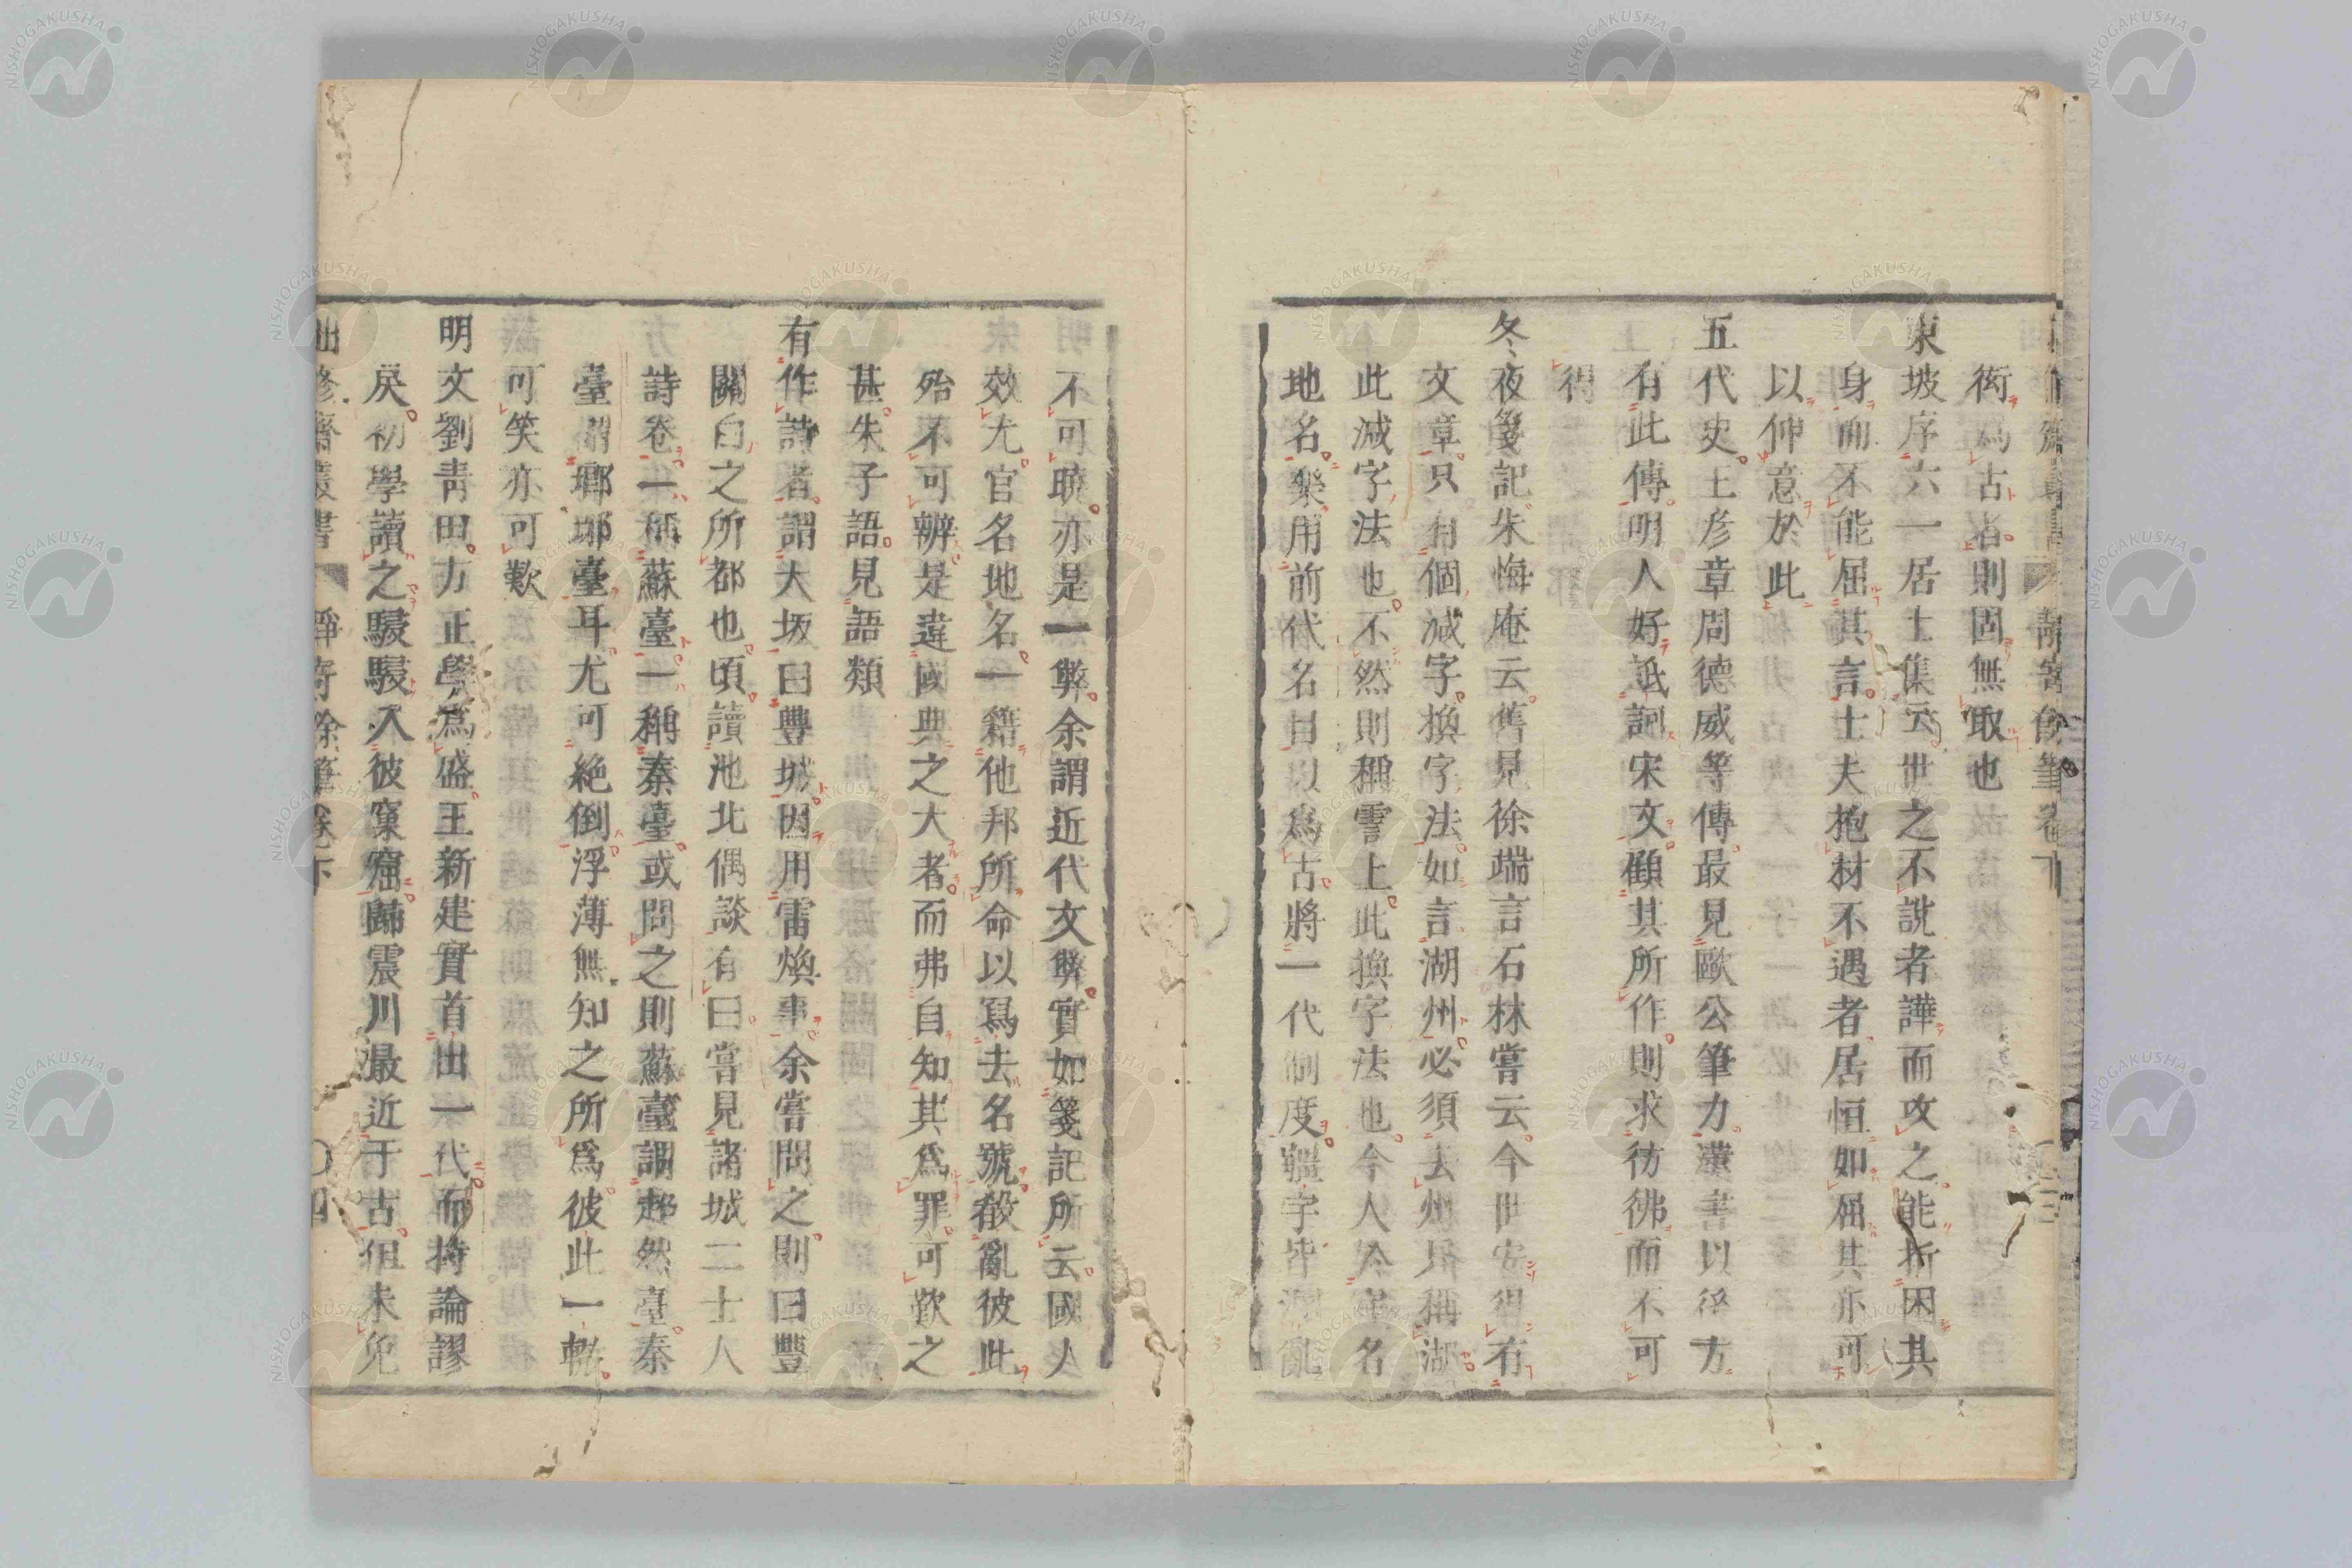 衒爲古者則固無取也
東坡序六一居士集云世之不說者譁而攻之能折困其
身而不能屈其言士夫抱材不遇者居恒如屈其亦可
以伸意於此
五代史王彥章周德威等傳最見歐公筆力漢書以後方
有此傳明人好詆訶宋文顧其所作則求彷彿而不可
得
冬夜箋記朱悔庵云舊見徐端言石林嘗云今世安得有
文章只有個減字換字法如言湖州必須去州只稱湖
此減字法也不然則稱霅上此換字法也今人於官名
地名樂用前代名目以爲古將一代制度疆宇皆淆亂
不可曉亦是一弊余謂近代文弊實如箋記所云國人
效尤官名地名一籍他邦所命以寫去名號殽亂彼此
殆不可辨是違國典之大者而弗自知其爲罪可歎之
甚朱子語見語類
有作詩者謂大坂曰豐城因用雷煥事余嘗問之則曰豐
關白之所都也頃讀池北偶談有曰嘗見諸城二士人
詩卷一稱蘇臺一稱秦臺或問之則蘇臺謂超然臺秦
臺謂瑯琊臺耳尤可絶倒浮薄無知之所爲彼此一轍
可笑亦可歎
明文劉青田方正學爲盛王新建實首出一代而持論謬
戾初學讀之駸駸入彼窠窟歸震川最近于古但未免
修齋叢書 靜寄餘筆卷下 〇四